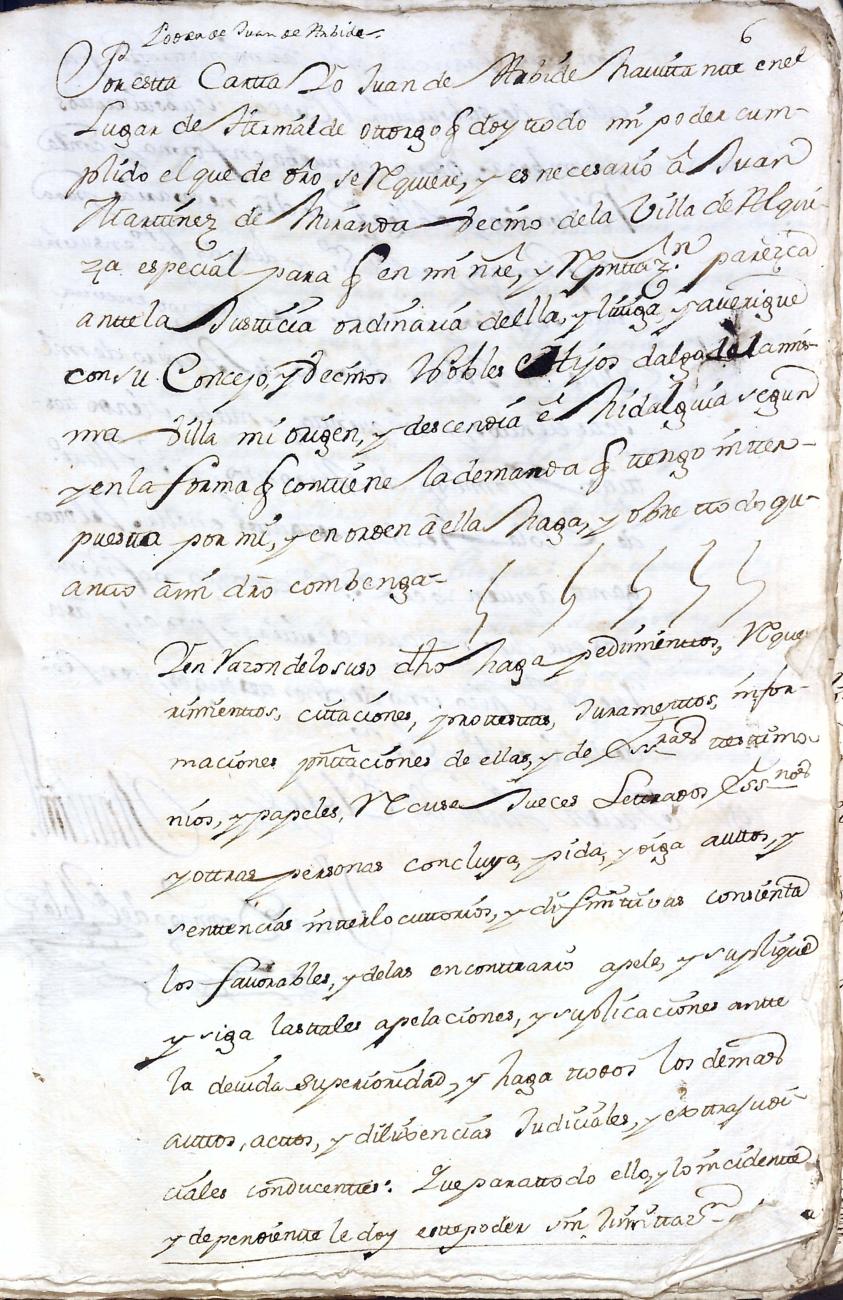 Poder de Juan de Arbide.
6
Por estta Cartta Yo Juan de Arbide havittantte en el
Lugar de Ytturmalde ottorgo q doy ttodo mi poder cum-
plido el que de dro se rrequiere, y es necesario â Juan
Marttinez de Miranda Vecino de la Villa de Alqui-
za especial para q en mi nre, y rrepnttazn. parezca
antte la Justticia ordinaria della, y littiga, y averigue
con su Concejo, y Vecinos Nobles e Hijos dalgo de la mis-
ma villa mi origen, y descendia e Hidalguia segun
y en la forma q conttiene la demanda q ttengo intter-
puestta por mi, y en orden â ella haga, y obre ttodo qu-
antto â mi dro combenga-
Y en razon de lo suso dho haga pedimienttos, rreque
rimienttos, cittaciones, prottesttas, Juramenttos, infor-
maciones pnttaciones de ellas, y de Essras ttesttimo-
nios, y papeles, rrecuse Jueces Lettrados Essnos
y ottras personas concluya, pida, y oiga auttos, y
senttencias intterlocuttorios, y difinittivas consientta
los favorables, y delas en conttrario apele, y suplique
y siga las ttales apelaciones, y suplicaciones antte
la devida superioridad, y haga ttodos los demas
auttos, acttos, y dilixencias Judiciales, y exttrajudi-
ciales conducenttes: Que para ttodo ello, y lo incidentte
y dependientte le doy estte poder sin limittazn